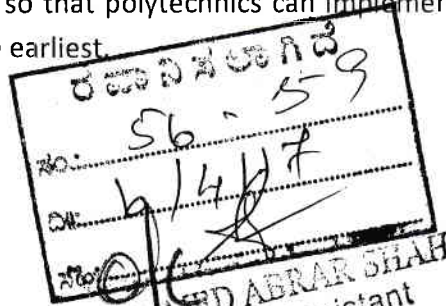 so that polytechnics can implemen
earliest.
ರವಾನಿಸಲಾಗಿದೆ
ಸಂ: 56-59
ದಿ: 4/4/17
ABRAR SHAH